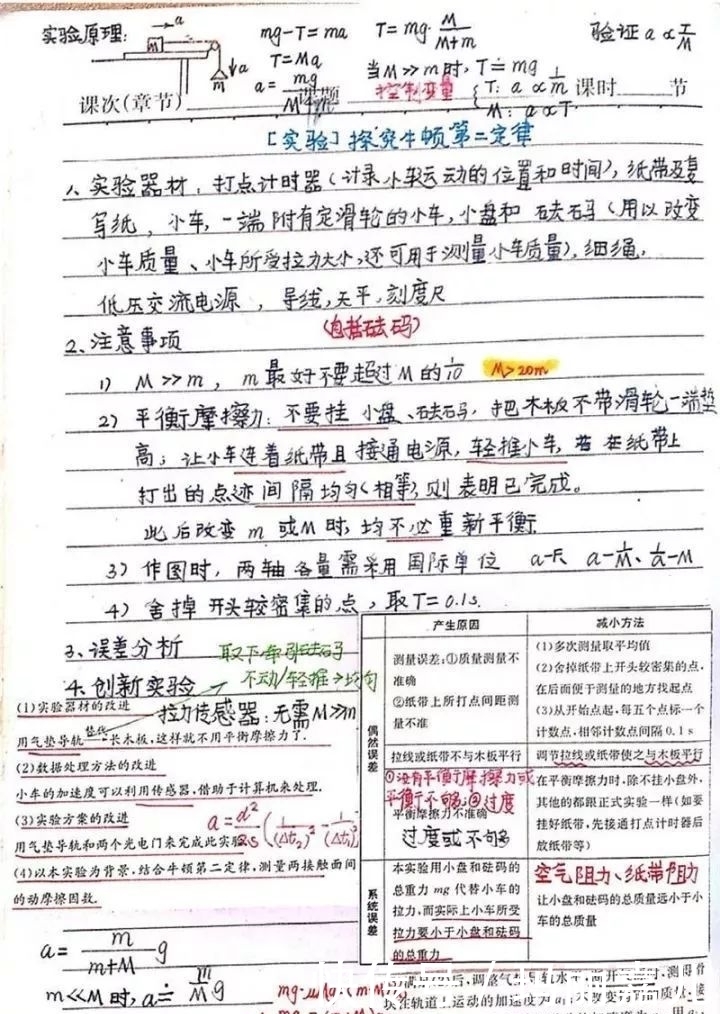 实验原理:
a
m
a
mg-T=ma
T=Ma
a=mg/M+m
T=mg·M/M+m
当M≫m时,T≐mg
控制变量 { T: a∝1/m
M: a∝T
验证 a∝T/M
课次(章节) 课题 课时 节
[实验]探究牛顿第二定律
1、实验器材:打点计时器(计录小车运动的位置和时间),纸带及复
写纸,小车,一端附有定滑轮的小车,小盘和砝码(用以改变
小车质量、小车所受拉力大小,还可用于测量小车质量),细绳,
低压交流电源,导线,天平,刻度尺
(包括砝码)
2、注意事项
1) M≫m,m最好不要超过M的1/10 M>20m
2) 平衡摩擦力:不要挂小盘、砝码,把木板不带滑轮一端垫
高;让小车连着纸带且接通电源,轻推小车,若在纸带上
打出的点迹间隔均匀(相等),则表明已完成。
此后改变m或M时,均不必重新平衡
3) 作图时,两轴各量需采用国际单位 a-F、a-1/M、1/a-M
4) 舍掉开头较密集的点,取T=0.1s.
3、误差分析
取下牵引砝码
不动/轻推→均匀
4、创新实验
(1)实验器材的改进
拉力传感器:无需M≫m
替代
用气垫导轨——长木板,这样就不用平衡摩擦力了.
(2)数据处理方法的改进
小车的加速度可以利用传感器,借助于计算机来处理.
(3)实验方案的改进
a=d²/2s(1/(Δt₂)²-1/(Δt₁)²)
用气垫导轨和两个光电门来完成此实验.
(4)以本实验为背景,结合牛顿第二定律,测量两接触面间
的动摩擦因数.
a=m/m+M g
m≪M时,a≐m/M g
产生原因 减小方法
偶然误差
测量误差:①质量测量不
准确
②纸带上所打点间距测
量不准
(1)多次测量取平均值
(2)舍掉纸带上开头较密集的点,
在后面便于测量的地方找起点
(3)从开始点起,每五个点标一个
计数点,相邻计数点间隔0.1 s
拉线或纸带不与木板平行
调节拉线或纸带使之与木板平行
①没有平衡摩擦力或
平衡不够;②过度
平衡摩擦力不准确
过度或不够多
在平衡摩擦力时,除不挂小盘外,
其他的都跟正式实验一样(如要
挂好纸带,先接通打点计时器后
放纸带等)
系统误差
本实验用小盘和砝码的
总重力mg代替小车的
拉力,而实际上小车所受
拉力要小于小盘和砝码
的总重力
空气阻力、纸带阻力
让小盘和砝码的总质量远小于小
车的总质量